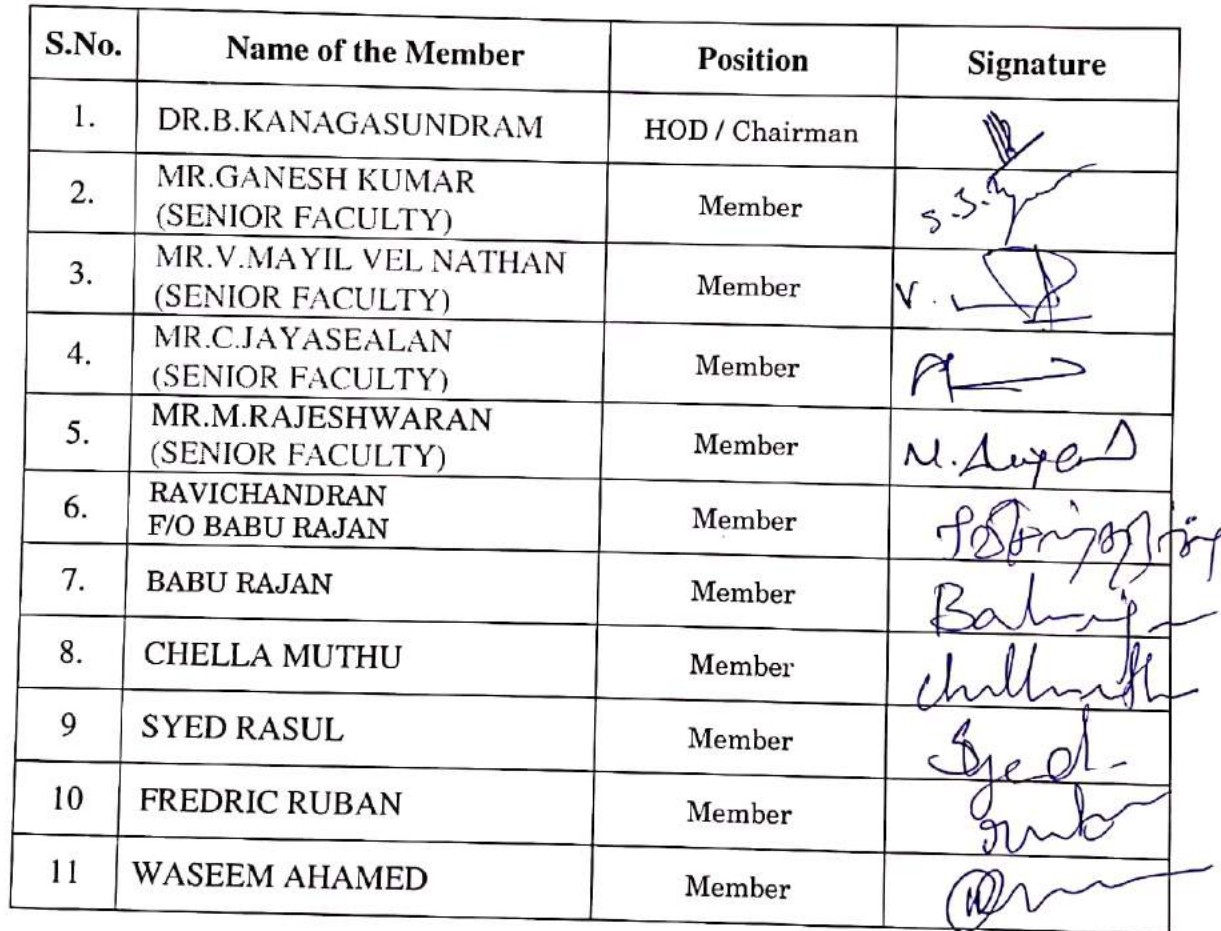 S.No. Name of the Member Position Signature
1. DR.B.KANAGASUNDRAM HOD / Chairman
2. MR.GANESH KUMAR
(SENIOR FACULTY) Member
3. MR.V.MAYIL VEL NATHAN
(SENIOR FACULTY) Member V.
4. MR.C.JAYASEALAN
(SENIOR FACULTY) Member
5. MR.M.RAJESHWARAN
(SENIOR FACULTY) Member M.
6. RAVICHANDRAN
F/O BABU RAJAN Member
7. BABU RAJAN Member
8. CHELLA MUTHU Member
9 SYED RASUL Member Syed
10 FREDRIC RUBAN Member
11 WASEEM AHAMED Member